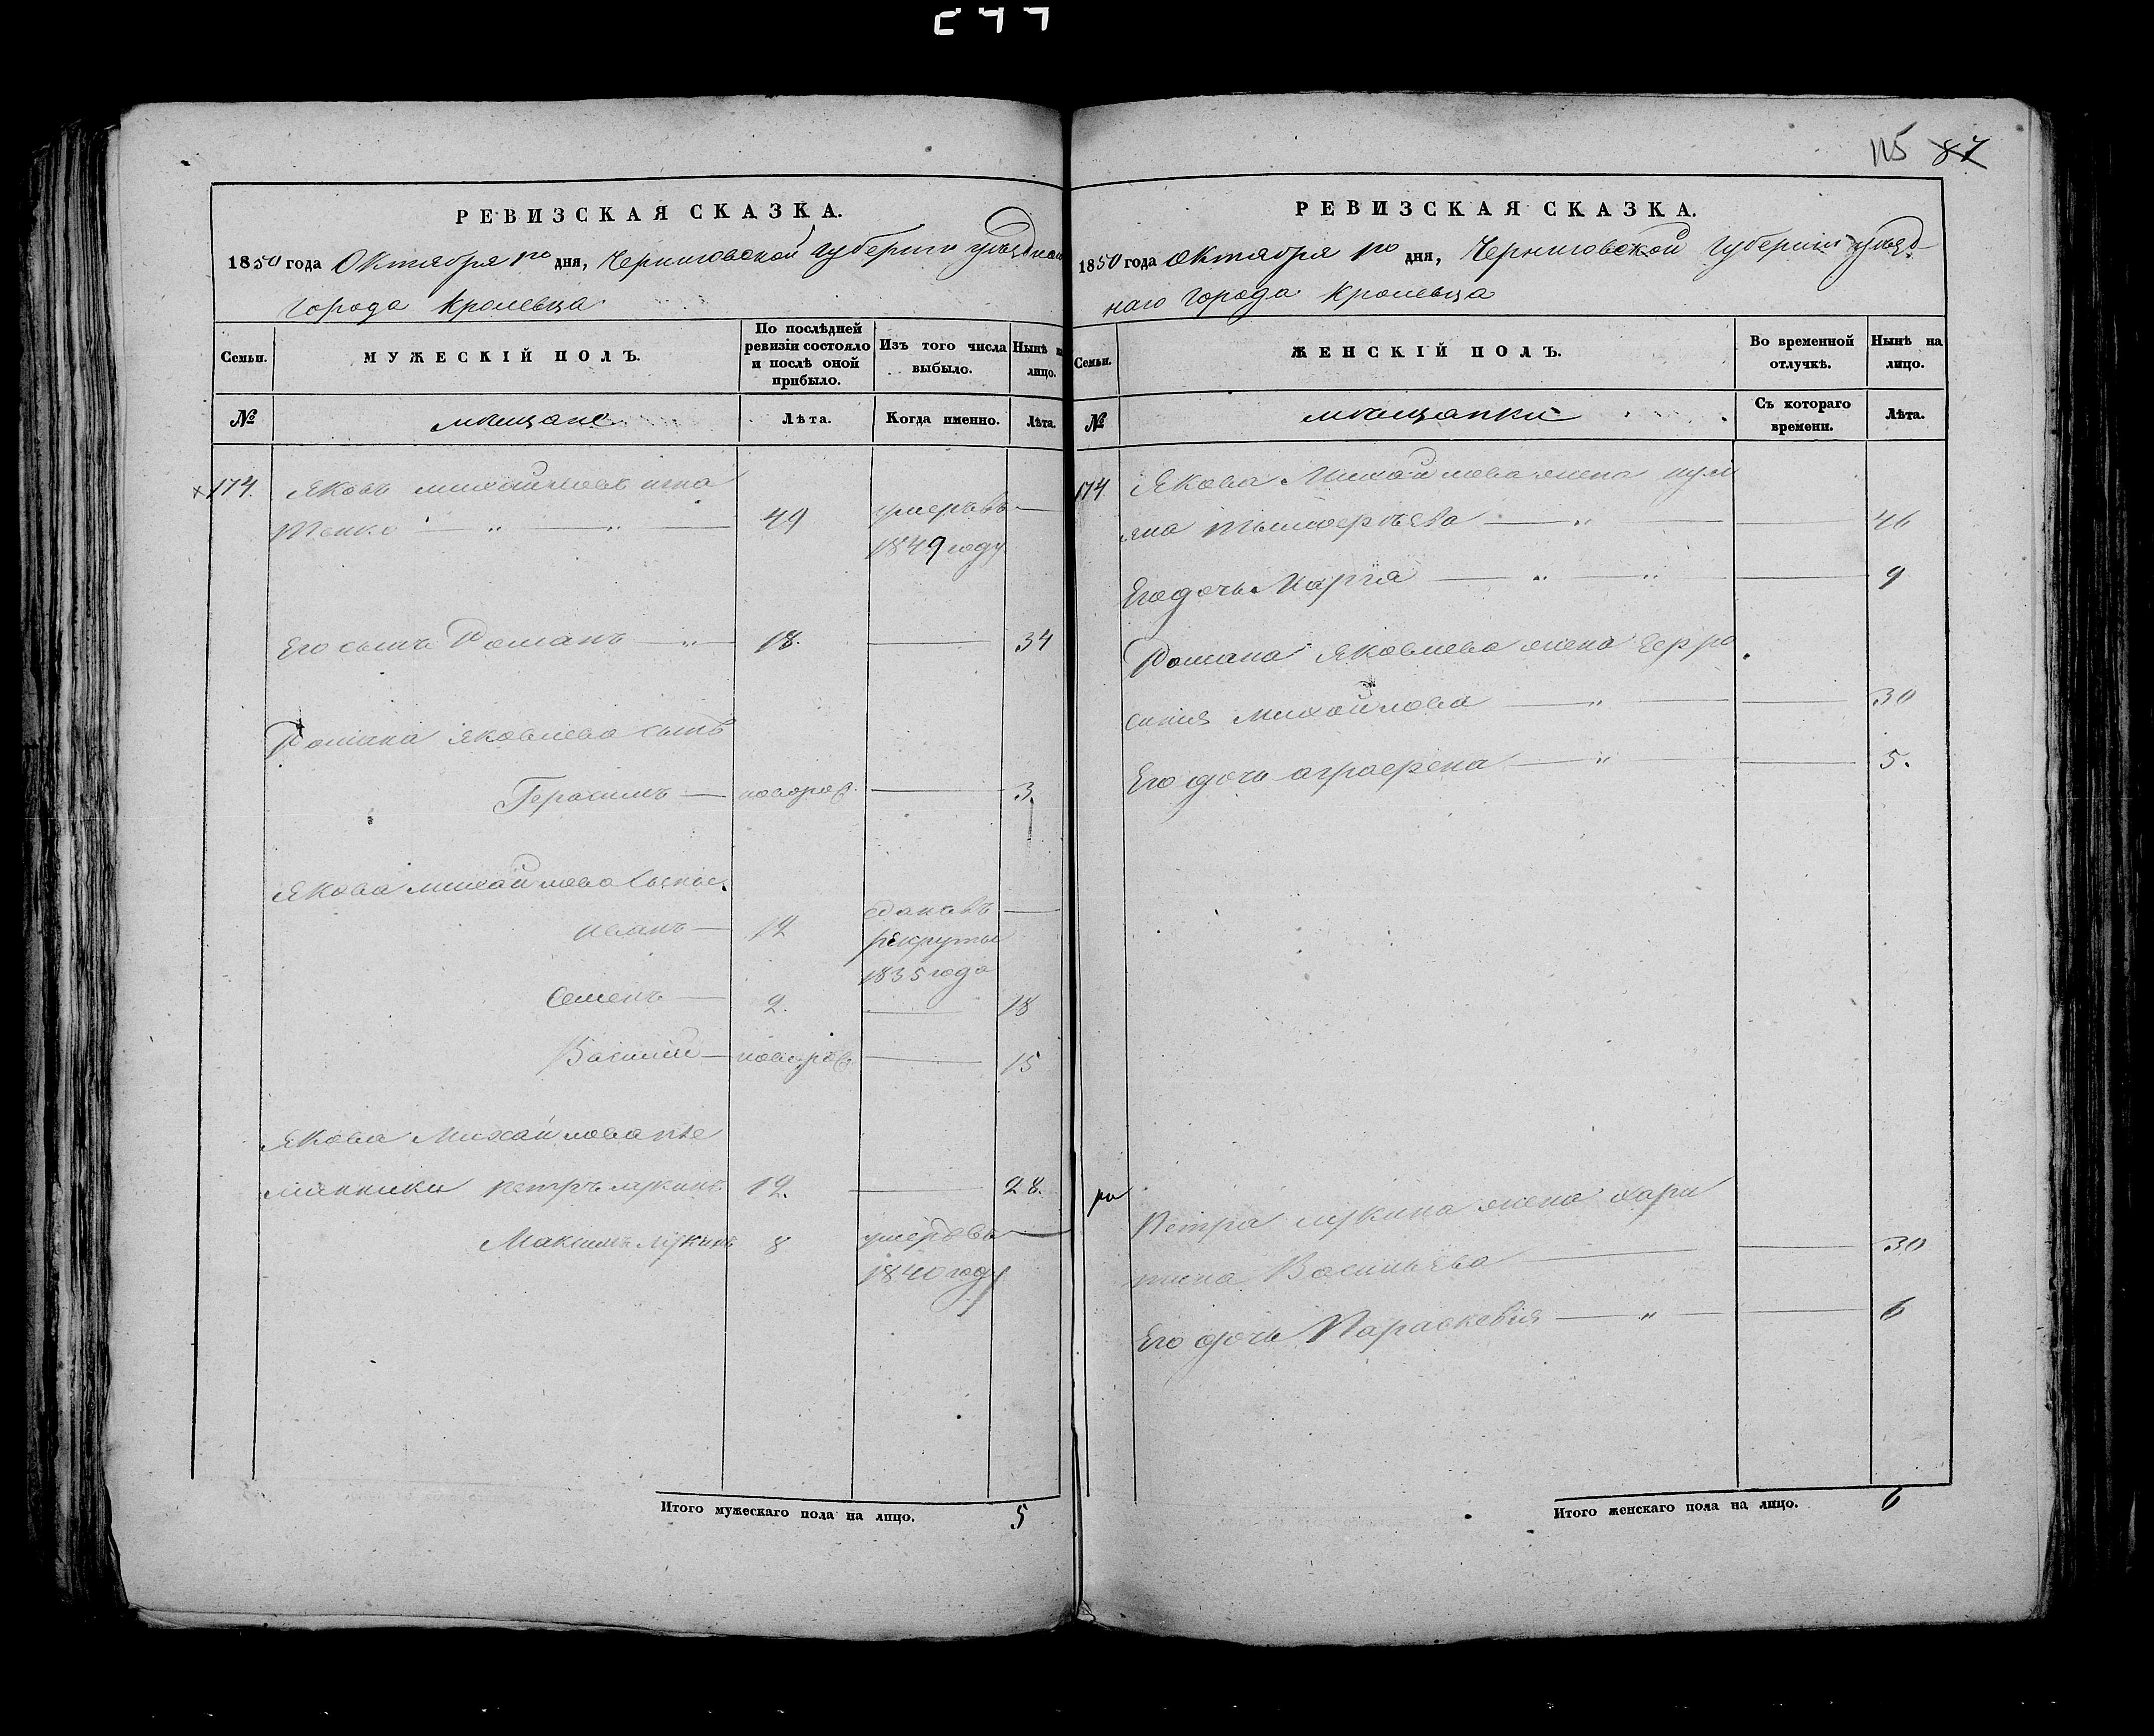 115 87
РЕВИЗСКАЯ СКАЗКА.
1850 года Октября 1го дня, Черниговской Губернии уѣзднаго
города Кролевца
Семьи.
МУЖЕСКІЙ ПОЛЪ.
По послѣдней ревизіи состояло и послѣ оной прибыло.
Изъ того числа выбыло.
Нынѣ на лицо.
№
мѣщане
Лѣта.
Когда именно.
Лѣта.
174. Яковъ Михайловъ Игна
тенко 49 умеръ въ
1849 году
Его сынъ Романъ 18. 34
Романа Яковлева сынъ
Герасимъ новорож. 3.
Якова Михайлова сынъ
Иванъ 14 отданъ въ
рекруты
1835 года
Семенъ 2. 18
Василій новорож. 15
Якова Михайлова пле
мянники Петръ Лукинъ 12. 28.
Максимъ Лукинъ 8 умеръ въ
1840 году
Итого мужескаго пола на лицо. 5
РЕВИЗСКАЯ СКАЗКА.
1850 года Октября 1го дня, Черниговской Губерніи уѣзд
наго города Кролевца
Семьи.
ЖЕНСКІЙ ПОЛЪ.
Во временной отлучкѣ.
Нынѣ на лицо.
№
мѣщанки
Съ котораго времени.
Лѣта.
174. Якова Михайлова жена Иули
яна 46
Его дочь Марѳа 9
Романа Яковлева жена Евфро
синия Михайлова 30
Его дочь Аграфена 5.
Петра Лукина жена Хари
тина Васильева 30
Его дочь Параскевія 6
Итого женскаго пола на лицо. 6